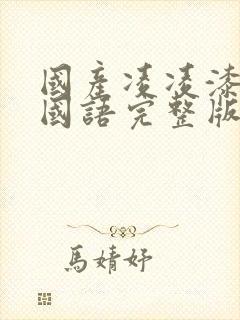 國產凌凌漆
國語完整版
馬婧妤